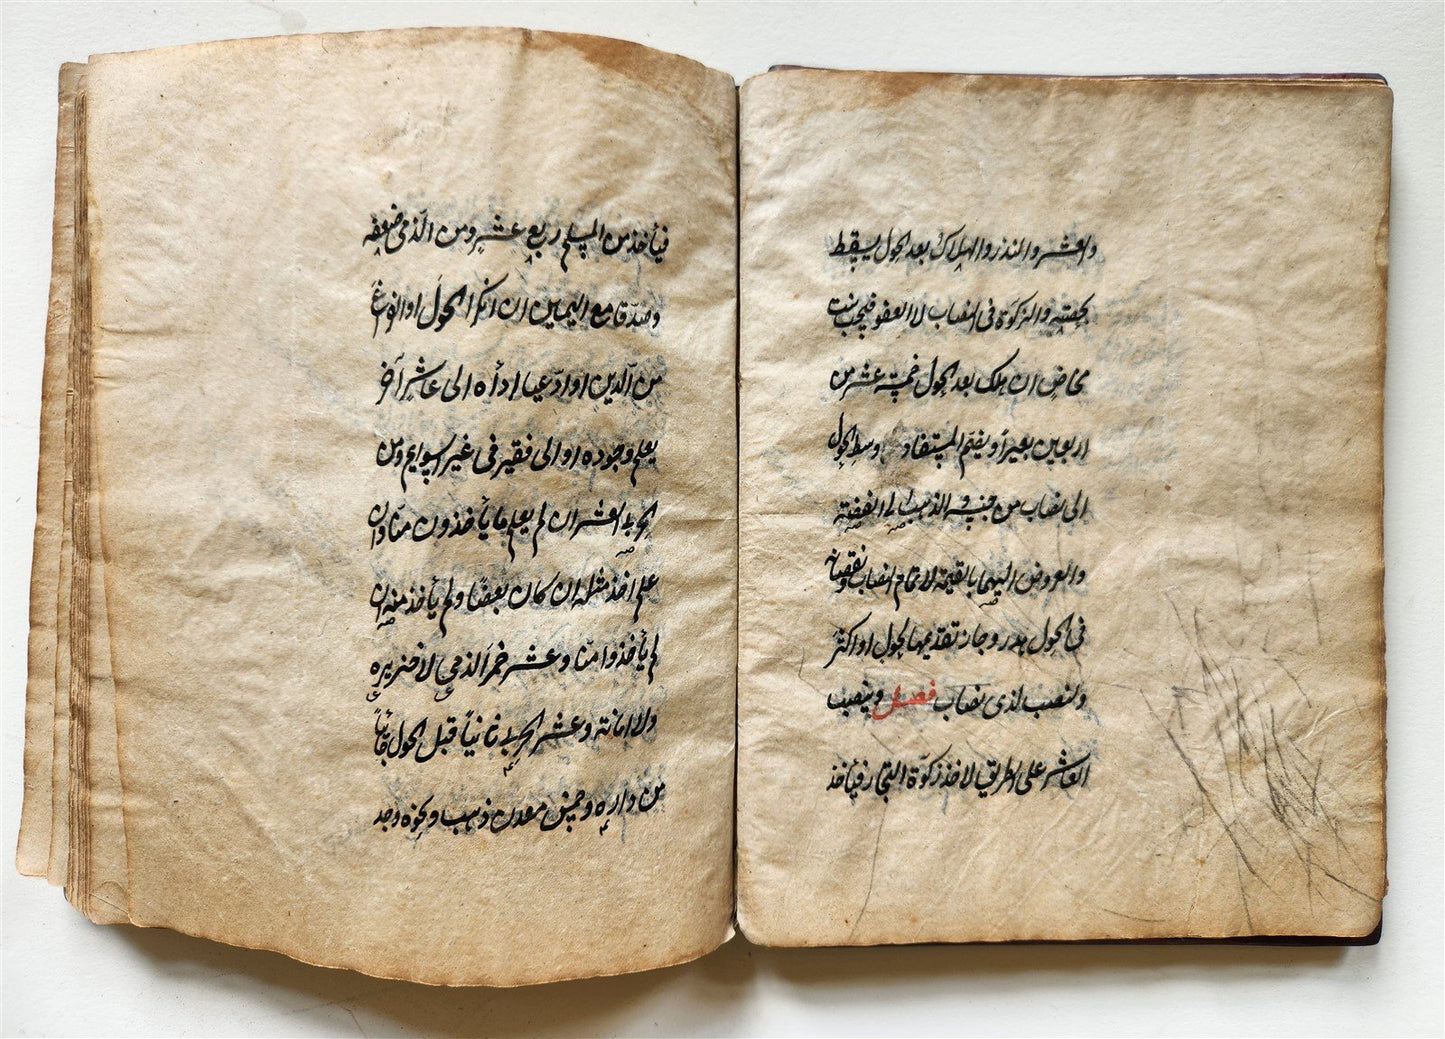 والعشر والنذر والهلاك بعد الحول يسقط
بحصته والزكوة فى النصاب لا العفو فيجب بنت
مخاض ان هلك بعد الحول خمسة عشر من
اربعين بعيرا ويضم المستفاد وسط الحول
الى نصاب من جنسه والذهب الى الفضة
والعروض اليهما بالقيمة لاتمام النصاب ونقصانه
فى الحول هدر وجاز تقديمها لحول او اكثر
ولنصب لذى نصاب فصل وينصب
العاشر على الطريق لاخذ زكوة التجار فيأخذ
فيأخذ من المسلم ربع عشر ومن الذمى ضعفه
وصدقا مع اليمين ان انكرا الحول او الفراغ
من الدين او ادعيا اداءه الى عاشر آخر
يعلم وجوده او الى فقير فى غير السوايم ومن
الحربى العشر ان لم يعلم ما يأخذون منا وان
علم اخذ مثله ان كان بعضا ولم يأخذ منه ان
لم يأخذوا منا وعشر خمر الذمى لا خنزيره
ولا امانة وعشر الحربى ثانيا قبل الحول جائيا
من داره وخمس معدن ذهب ونحوه وجد